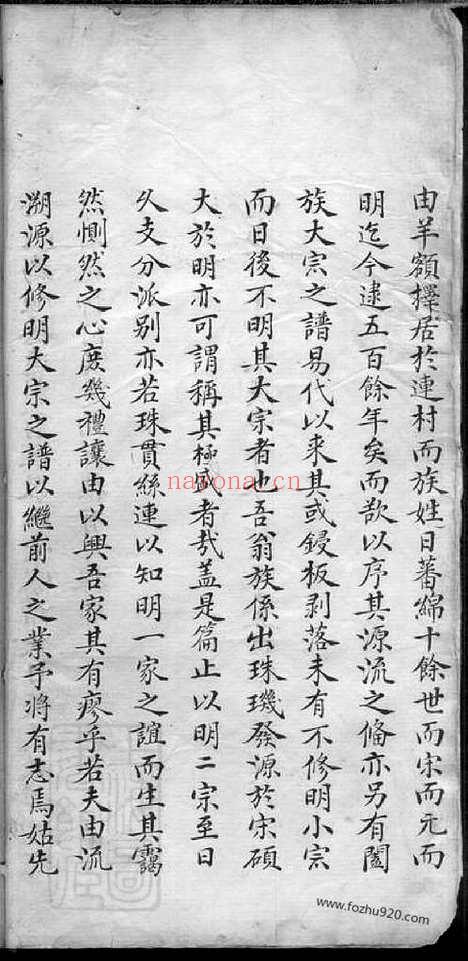 由羊額擇居於連村而族姓日蕃綿十餘世而宋而元而
明迄今逮五百餘年矣而欲以序其源流之俻亦另有闔
族大宗之譜易代以來其或鋟板剥落未有不修明小宗
而日後不明其大宗者也吾翁族係出珠璣發源於宋碩
大於明亦可謂稱其極盛者哉盖是篇止以明二宗至日
乆支分派别亦若珠貫絲連以知明一家之誼而生其靄
然惻然之心庻幾禮讓由以興吾家其有廖乎若夫由流
溯源以修明大宗之譜以繼前人之業予将有志焉姑先
nayona.cn
www.fozhu920.com